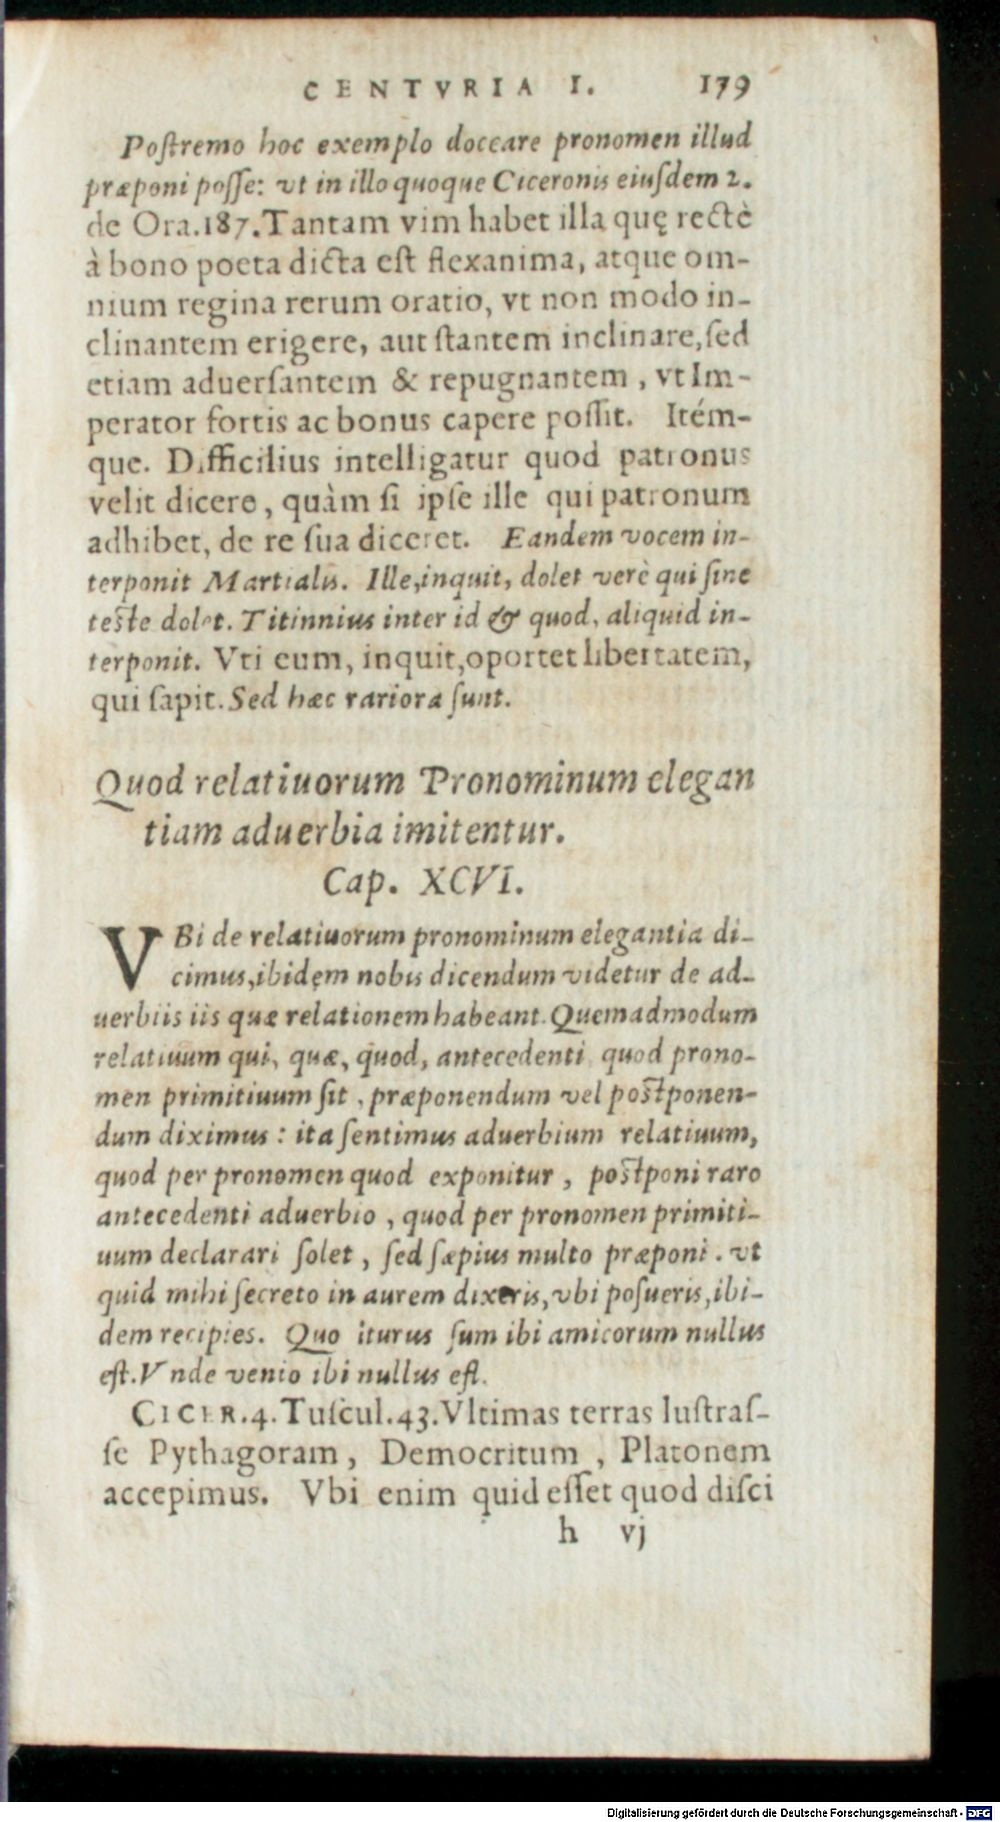 CENTVRIA I. 179
Poſtremo hoc exemplo doceare pronomen illud
præponi poſſe: vt in illo quoque Ciceronis eiuſdem 2.
de Ora.187.Tantam vim habet illa quę rectè
à bono poeta dicta eſt flexanima, atque om-
nium regina rerum oratio, vt non modo in-
clinantem erigere, aut ſtantem inclinare,ſed
etiam aduerſantem & repugnantem , vt Im-
perator fortis ac bonus capere poſſit. Itém-
que. Difficilius intelligatur quod patronus
velit dicere, quàm ſi ipſe ille qui patronum
adhibet, de re ſua diceret. Eandem vocem in-
terponit Martialis. Ille,inquit, dolet verè qui ſine
teſte dolet. Titinnius inter id & quod, aliquid in-
terponit. Vti eum, inquit,oportet libertatem,
qui ſapit. Sed hæc rariora ſunt.
Quod relatiuorum Pronominum elegan
tiam aduerbia imitentur.
Cap. XCVI.
VBi de relatiuorum pronominum elegantia di-
cimus,ibidęm nobis dicendum videtur de ad-
uerbiis iis quæ relationem habeant. Quemadmodum
relatiuum qui, quæ, quod, antecedenti quod prono-
men primitiuum ſit , præponendum vel poſtponen-
dum diximus : ita ſentimus aduerbium relatiuum,
quod per pronomen quod exponitur , poſtponi raro
antecedenti aduerbio , quod per pronomen primiti-
uum declarari ſolet , ſed ſæpius multo præponi . vt
quid mihi ſecreto in aurem dixeris,vbi poſueris,ibi-
dem recipies. Quo iturus ſum ibi amicorum nullus
eſt.Vnde venio ibi nullus eſt.
CICER.4.Tuſcul.43.Vltimas terras luſtraſ-
ſe Pythagoram , Democritum , Platonem
accepimus. Vbi enim quid eſſet quod diſci
h vj
Digitalisierung gefördert durch die Deutsche Forschungsgemeinschaft - DFG